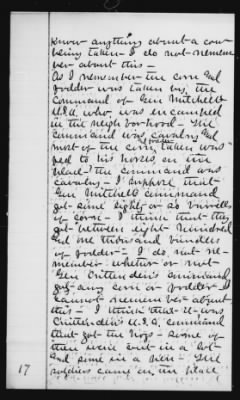 know anything about a cow
being taken I do not remem
ber about this –
As I remember the corn and
fodder was taken by the
command of Gen Mitchell
U.S.A. who was encamped
in the neighborhood – The
command was cavalry and
most of the corn taken was
fodder
fed to his horses, on the
place – the command was
cavalry – I suppose that
Gen Mitchell's command
got some eighty or so barrels
of corn – I think that they
got between eight hundred
and one thousand bundles
of fodder – I do not re-
member whether or not
Gen Crittenden's command
got any corn or fodder – I
cannot remember about
this – I think that it was
Crittenden's U.S.A. command
that got the hogs – some of
them were out in a lot
and some in a pen – The
soldiers came on the place
17